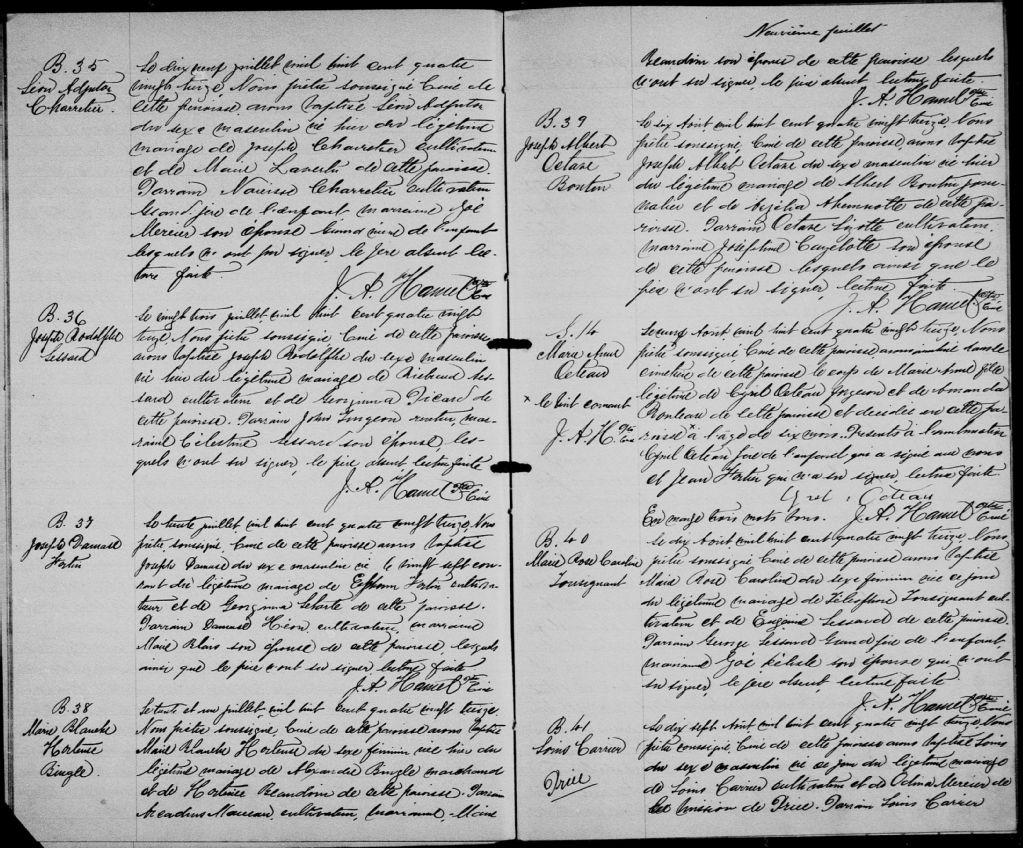 B. 35
Léon Adjutor
Charretier.
Le dix neuf juillet mil huit cent quatre
vingt treize, Nous prêtre soussigné Curé de
cette paroisse avons baptisé Léon Adjutor
du sexe masculin né hier du légitime
mariage de Joseph Charretier cultivateur
et de Marie de cette paroisse.
Parrain Narcisse Charretier cultivateur
Grand père de l'enfant, marraine Zoé
Mercier son épouse Grand mère de l'enfant
lesquels n'ont pu signer, le père absent lec-
ture faite
J. A. Hamel ptre Curé
B. 36
Joseph Rodolphe
Lessard
Le vingt trois juillet mil huit cent quatre vingt
treize, Nous prêtre soussigné Curé de cette paroisse
avons baptisé Joseph Rodolphe du sexe masculin
né hier du légitime mariage de Richard Les-
sard cultivateur et de Georgina Picard de
cette paroisse. Parrain John rentier, mar-
raine Célestine Lessard son épouse les-
quels n'ont su signer, le père absent, lecture faite
J. A. Hamel ptre Curé
B. 37
Joseph Damase
Fortin
Le trente juillet mil huit cent quatre vingt treize, Nous
prêtre soussigné Curé de cette paroisse avons baptisé
Joseph Damase du sexe masculin né le vingt sept cou-
rant du légitime mariage de Fortin cultiva-
teur et de Georgina de cette paroisse.
Parrain Damase Héon, cultivateur, marraine
Marie Blais son épouse de cette paroisse, lesquels
ainsi que le père n'ont su signer lecture faite
J. A. Hamel ptre Curé
B. 38
Marie Blanche
Hortense
Bingle.
Le trente et un juillet, mil huit cent quatre vingt treize
Nous prêtre soussigné, Curé de cette paroisse avons baptisé
Marie Blanche Hortense du sexe féminin née hier du
légitime mariage de Alexandre Bingle marchand
et de Hortense Beaudoin de cette paroisse. Parrain
cultivateur, marraine, Marie
Neuvième feuillet
Beaudoin son épouse de cette paroisse lesquels
n'ont su signer, le père absent lecture faite.
J. A. Hamel ptre Curé
B. 39
Joseph Albert
Octave
Boutin
Le six Août mil huit cent quatre vingt treize, Nous
prêtre soussigné, Curé de cette paroisse avons baptisé
Joseph Albert Octave du sexe masculin né hier
du légitime mariage de Albert Boutin jour-
nalier et de de cette pa-
roisse. Parrain Octave cultivateur,
marraine Joséphine son épouse
de cette paroisse lesquels ainsi que le
père n'ont su signer, lecture faite.
J. A. Hamel ptre Curé
S. 14
Marie Anne
Coteau
x le huit courant
J. A. H. ptre Curé
Le Août mil huit cent quatre vingt treize, Nous
prêtre soussigné Curé de cette paroisse avons inhumé dans le
cimetière de cette paroisse le corps de Marie Anne fille
légitime de Cyrel Coteau forgeron et de Amanda
de cette paroisse et décédée en cette pa-
roisse x à l'âge de six mois. Présents à l'inhumation
Cyrel Coteau père de l'enfant qui a signé avec nous
et Jean Fortier qui n'a su signer, lecture faite
Cyrel Coteau
En marge trois mots bons. J. A. Hamel ptre Curé
B. 40
Marie Rose Caroline
Tousignant
Le dix Août mil huit cent quatre vingt treize, Nous
prêtre soussigné Curé de cette paroisse avons baptisé
Marie Rose Caroline du sexe féminin née ce jour
du légitime mariage de Télesphore Tousignant cul-
tivateur et de Eugénie Lessard de cette paroisse
Parrain George Lessard Grand père de l'enfant,
marraine Zoé son épouse qui n'ont
su signer, le père absent, lecture faite
J. A. Hamel ptre Curé
B. 41
Louis Carrier
Price
Le dix sept Août mil huit cent quatre vingt treize, Nous
prêtre soussigné Curé de cette paroisse avons baptisé Louis
du sexe masculin né ce jour du légitime mariage
de Louis Carrier cultivateur et de Odma Mercier de
la mission de Price. Parrain Louis Carrier